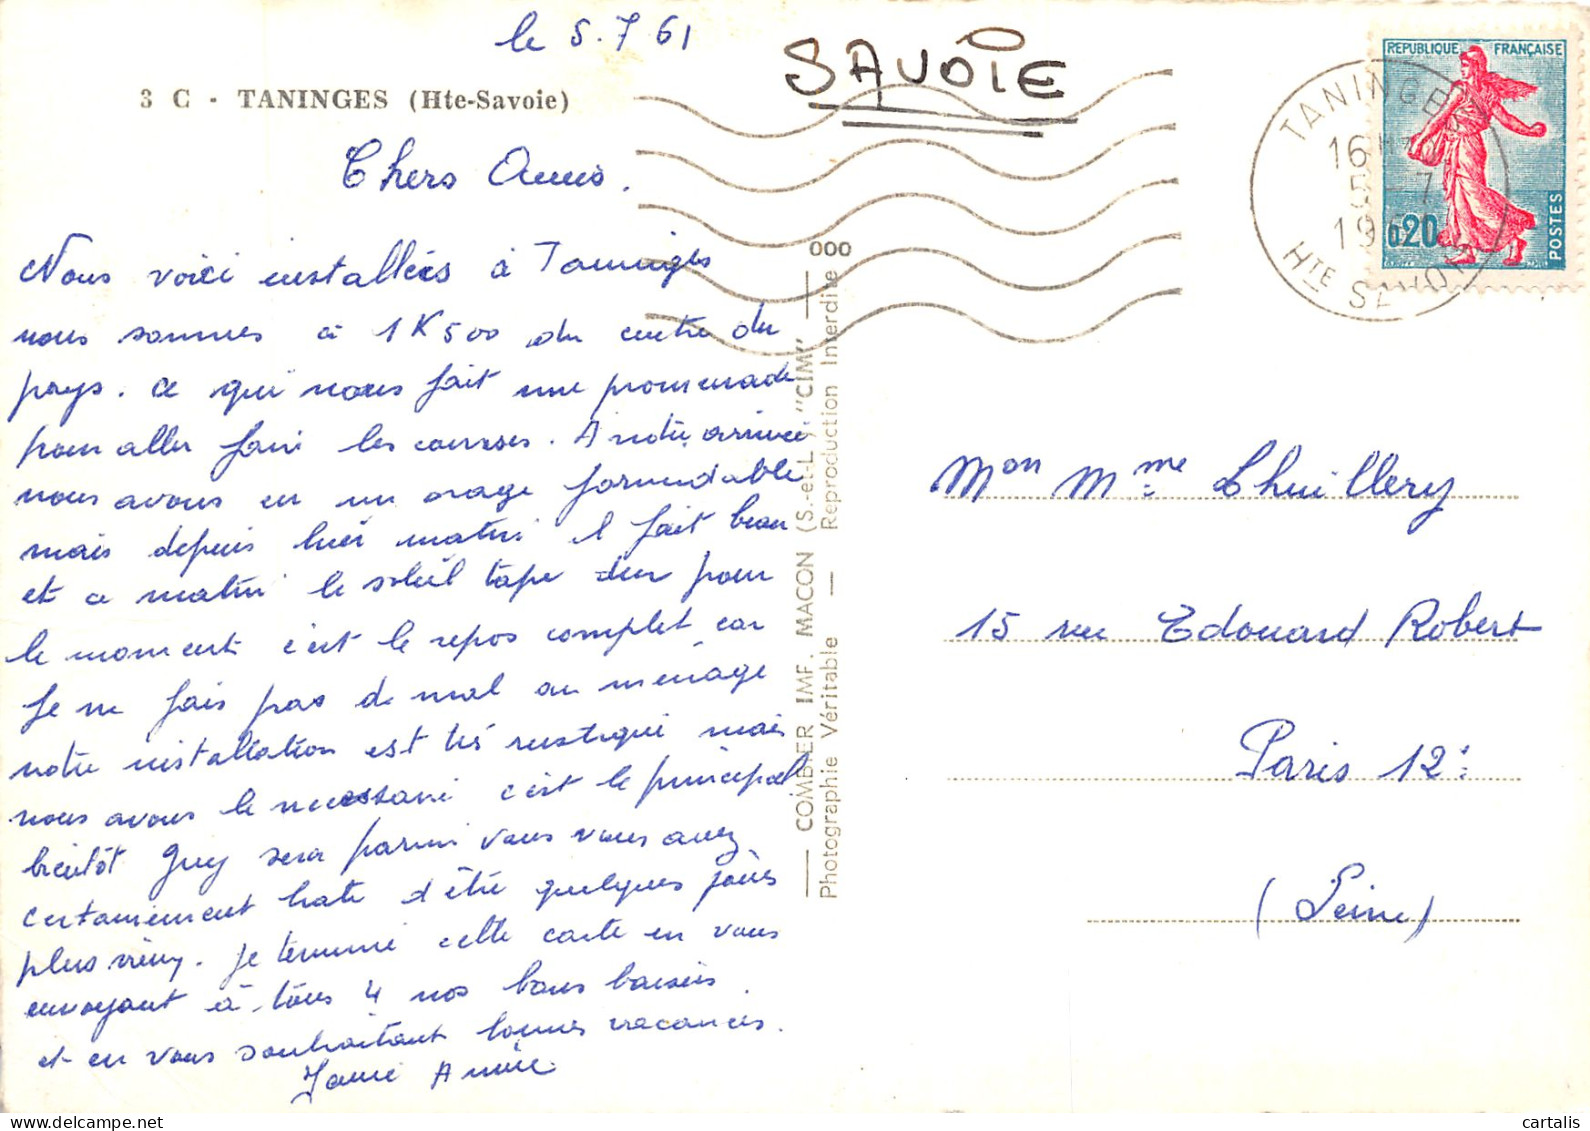 le 5.7 61
SAVOIE
3 C - TANINGES (Hte-Savoie)
Chers Amis.
Nous voici installées à Taninges
nous sommes à 1K500 du centre du
pays. ce qui nous fait une promenade
pour aller faire les courses. A notre arrivée
nous avons eu un orage formidable
mais depuis hier matin il fait beau
et ce matin le soleil tape dur pour
le moment c'est le repos complet car
je ne fais pas de mal au ménage
notre installation est très rustique mais
nous avons le necessaire c'est le principal
bientôt Guy sera parmi vous vous avez
certainement hate d'être quelques jours
plus vieux. je termine cette carte en vous
envoyant à tous 4 nos bons baisers.
et en vous souhaitant bonnes vacances.
000
COMBIER IMP. MACON (S.-et-L.) "CIM"
Photographie Véritable — Reproduction Interdite
REPUBLIQUE FRANÇAISE
0,20
POSTES
TANINGES
16H
5 -7
1961
HTE SAVOIE
Mon Mme Lhuillery
15 rue Edouard Robert
Paris 12e
(Seine)